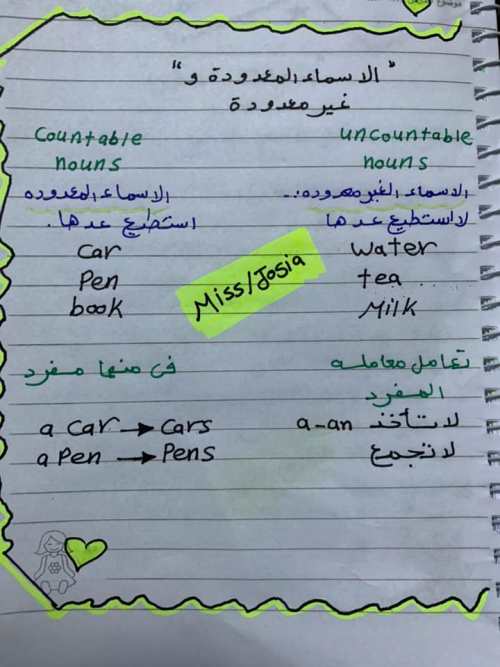 "الاسماء المعدودة و"
غير معدودة
Countable
nouns
uncountable
nouns
الاسماء المعدوده
الاسماء الغير معدوده..
استطيع عدها.
لا استطيع عدها
Car
water
Pen
tea
book
Milk
Miss/Josia
فى منها مفرد
تعامل معامله
المفرد
a car → Cars
لا تأخذ a-an
a Pen → Pens
لا تجمع